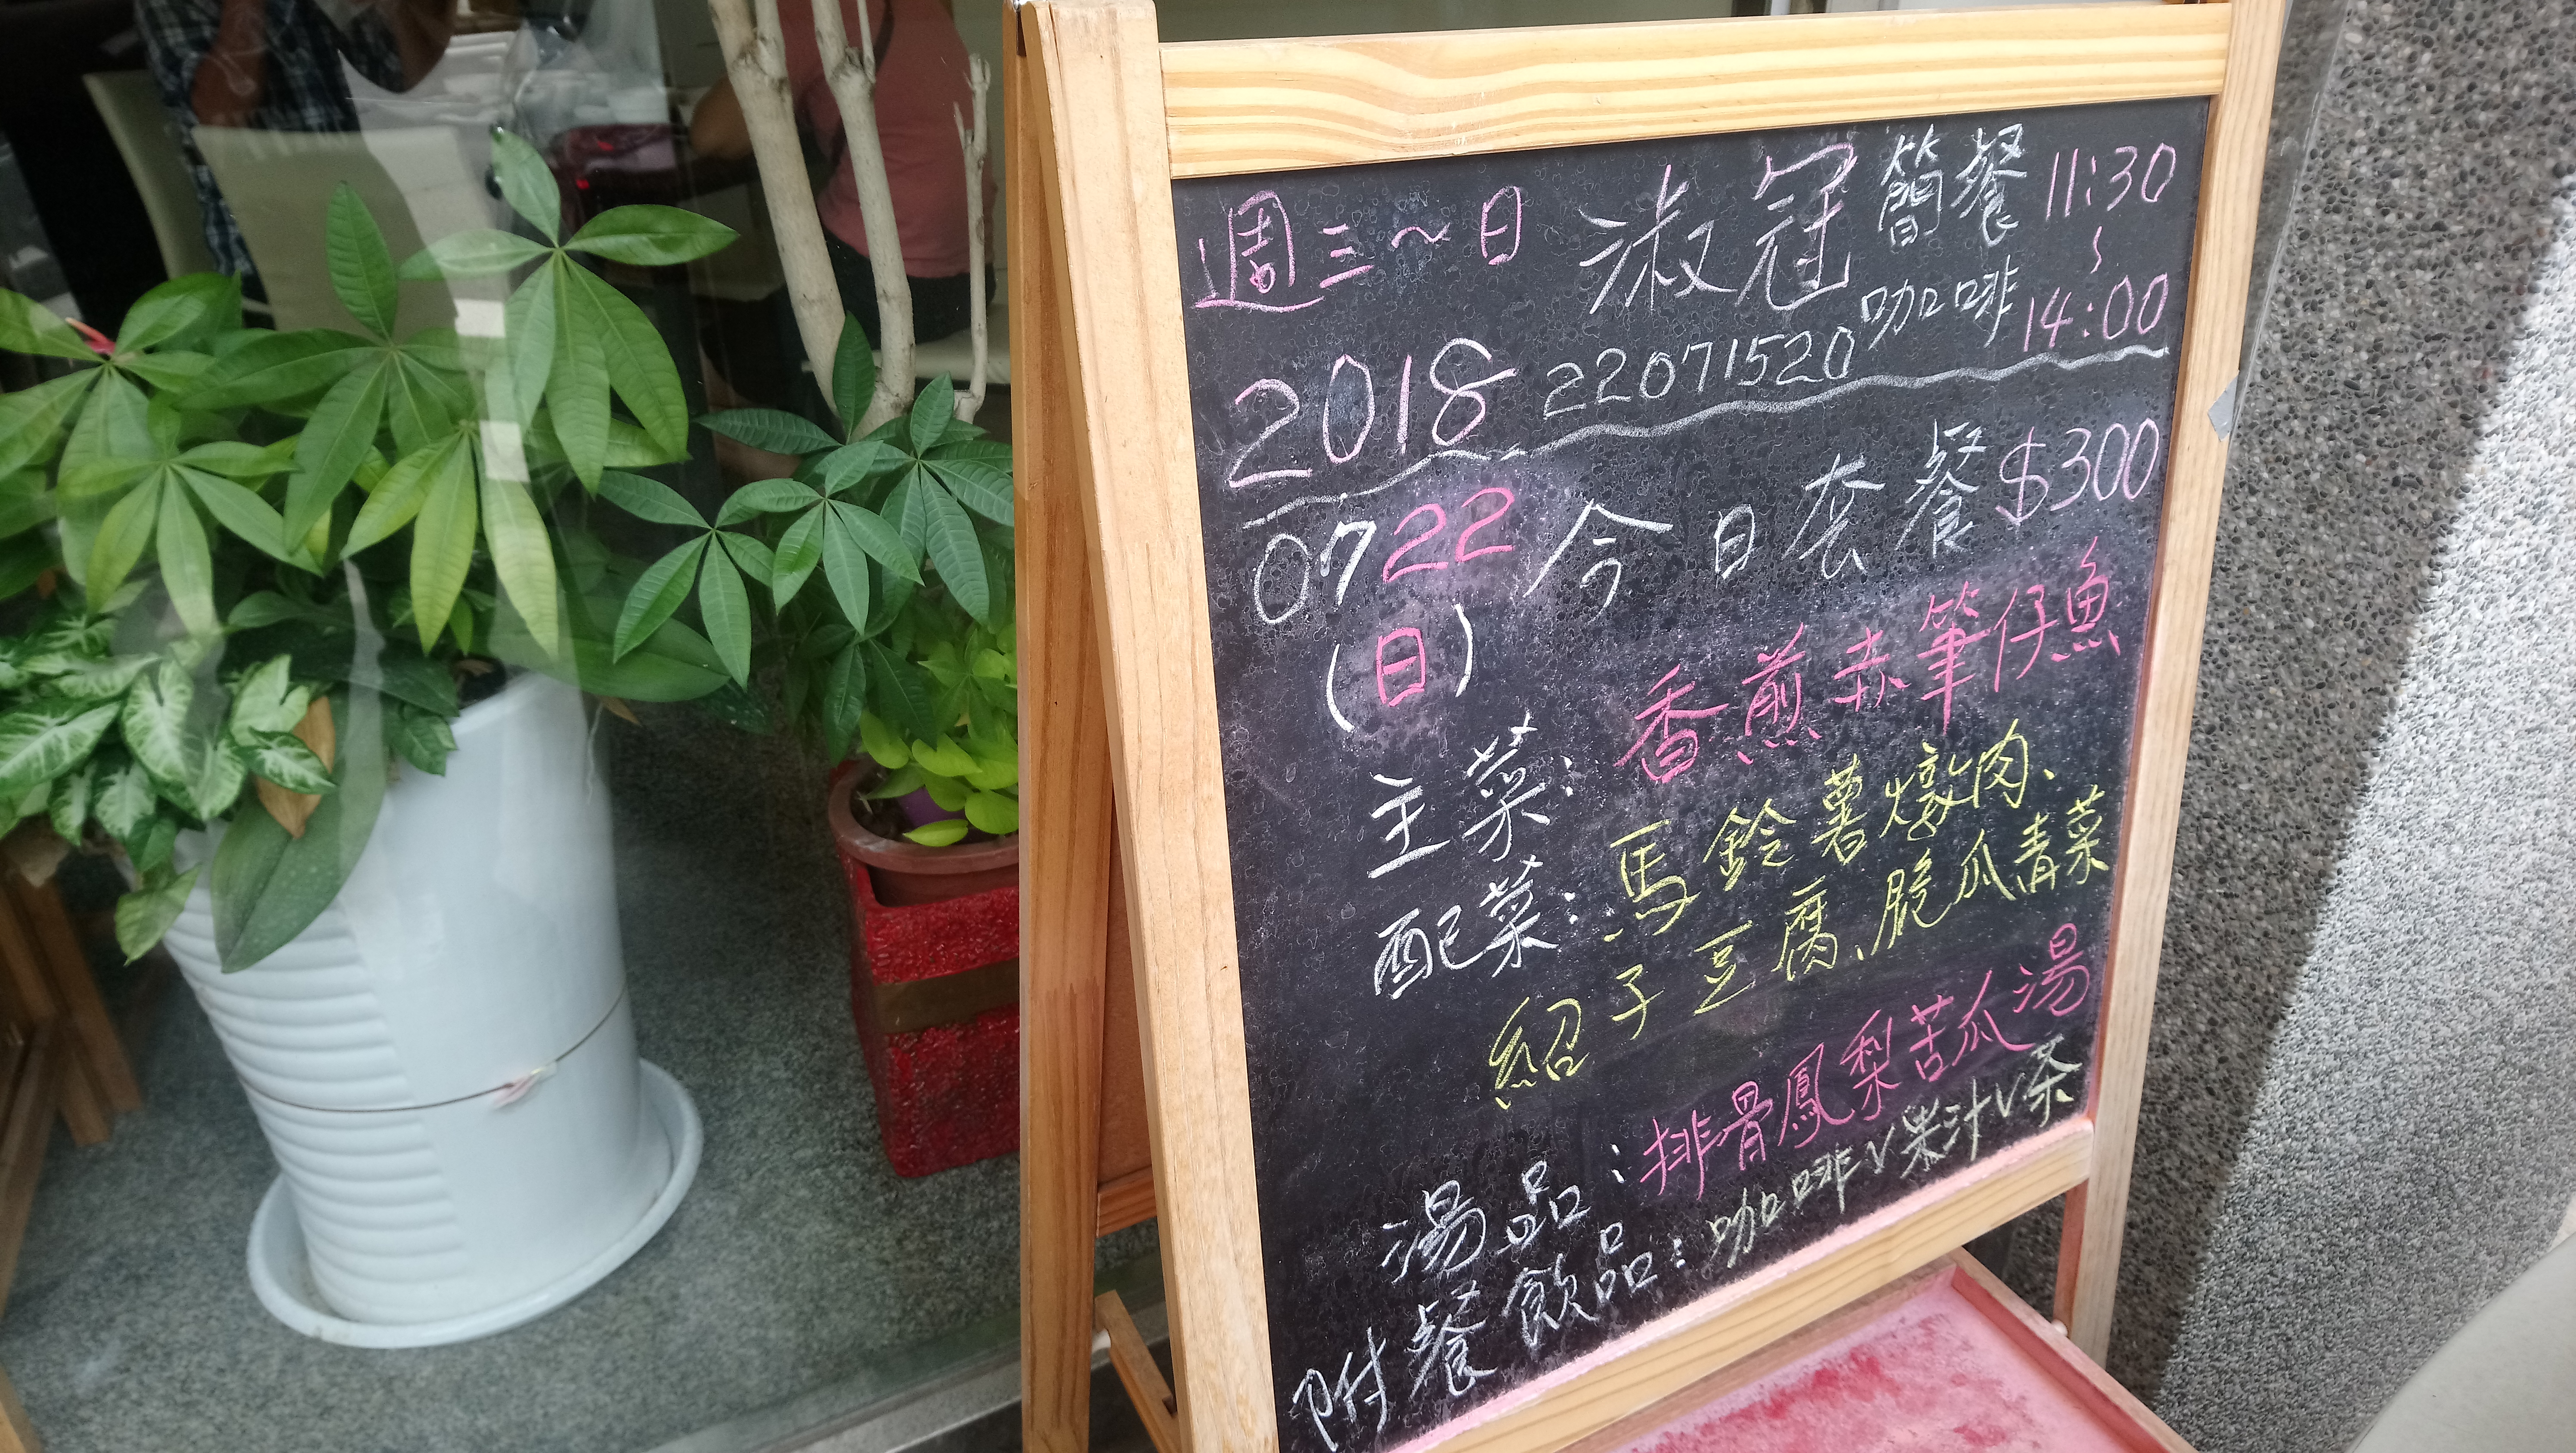 週三～日 淑冠 簡餐 11:30
～
咖啡 14:00
2018 22071520
0722 今日套餐 $300
(日)
主菜: 香煎赤筆仔魚
配菜: 馬鈴薯燉肉、
紹子豆腐、脆瓜青菜
湯品: 排骨鳳梨苦瓜湯
附餐飲品: 咖啡v果汁v茶